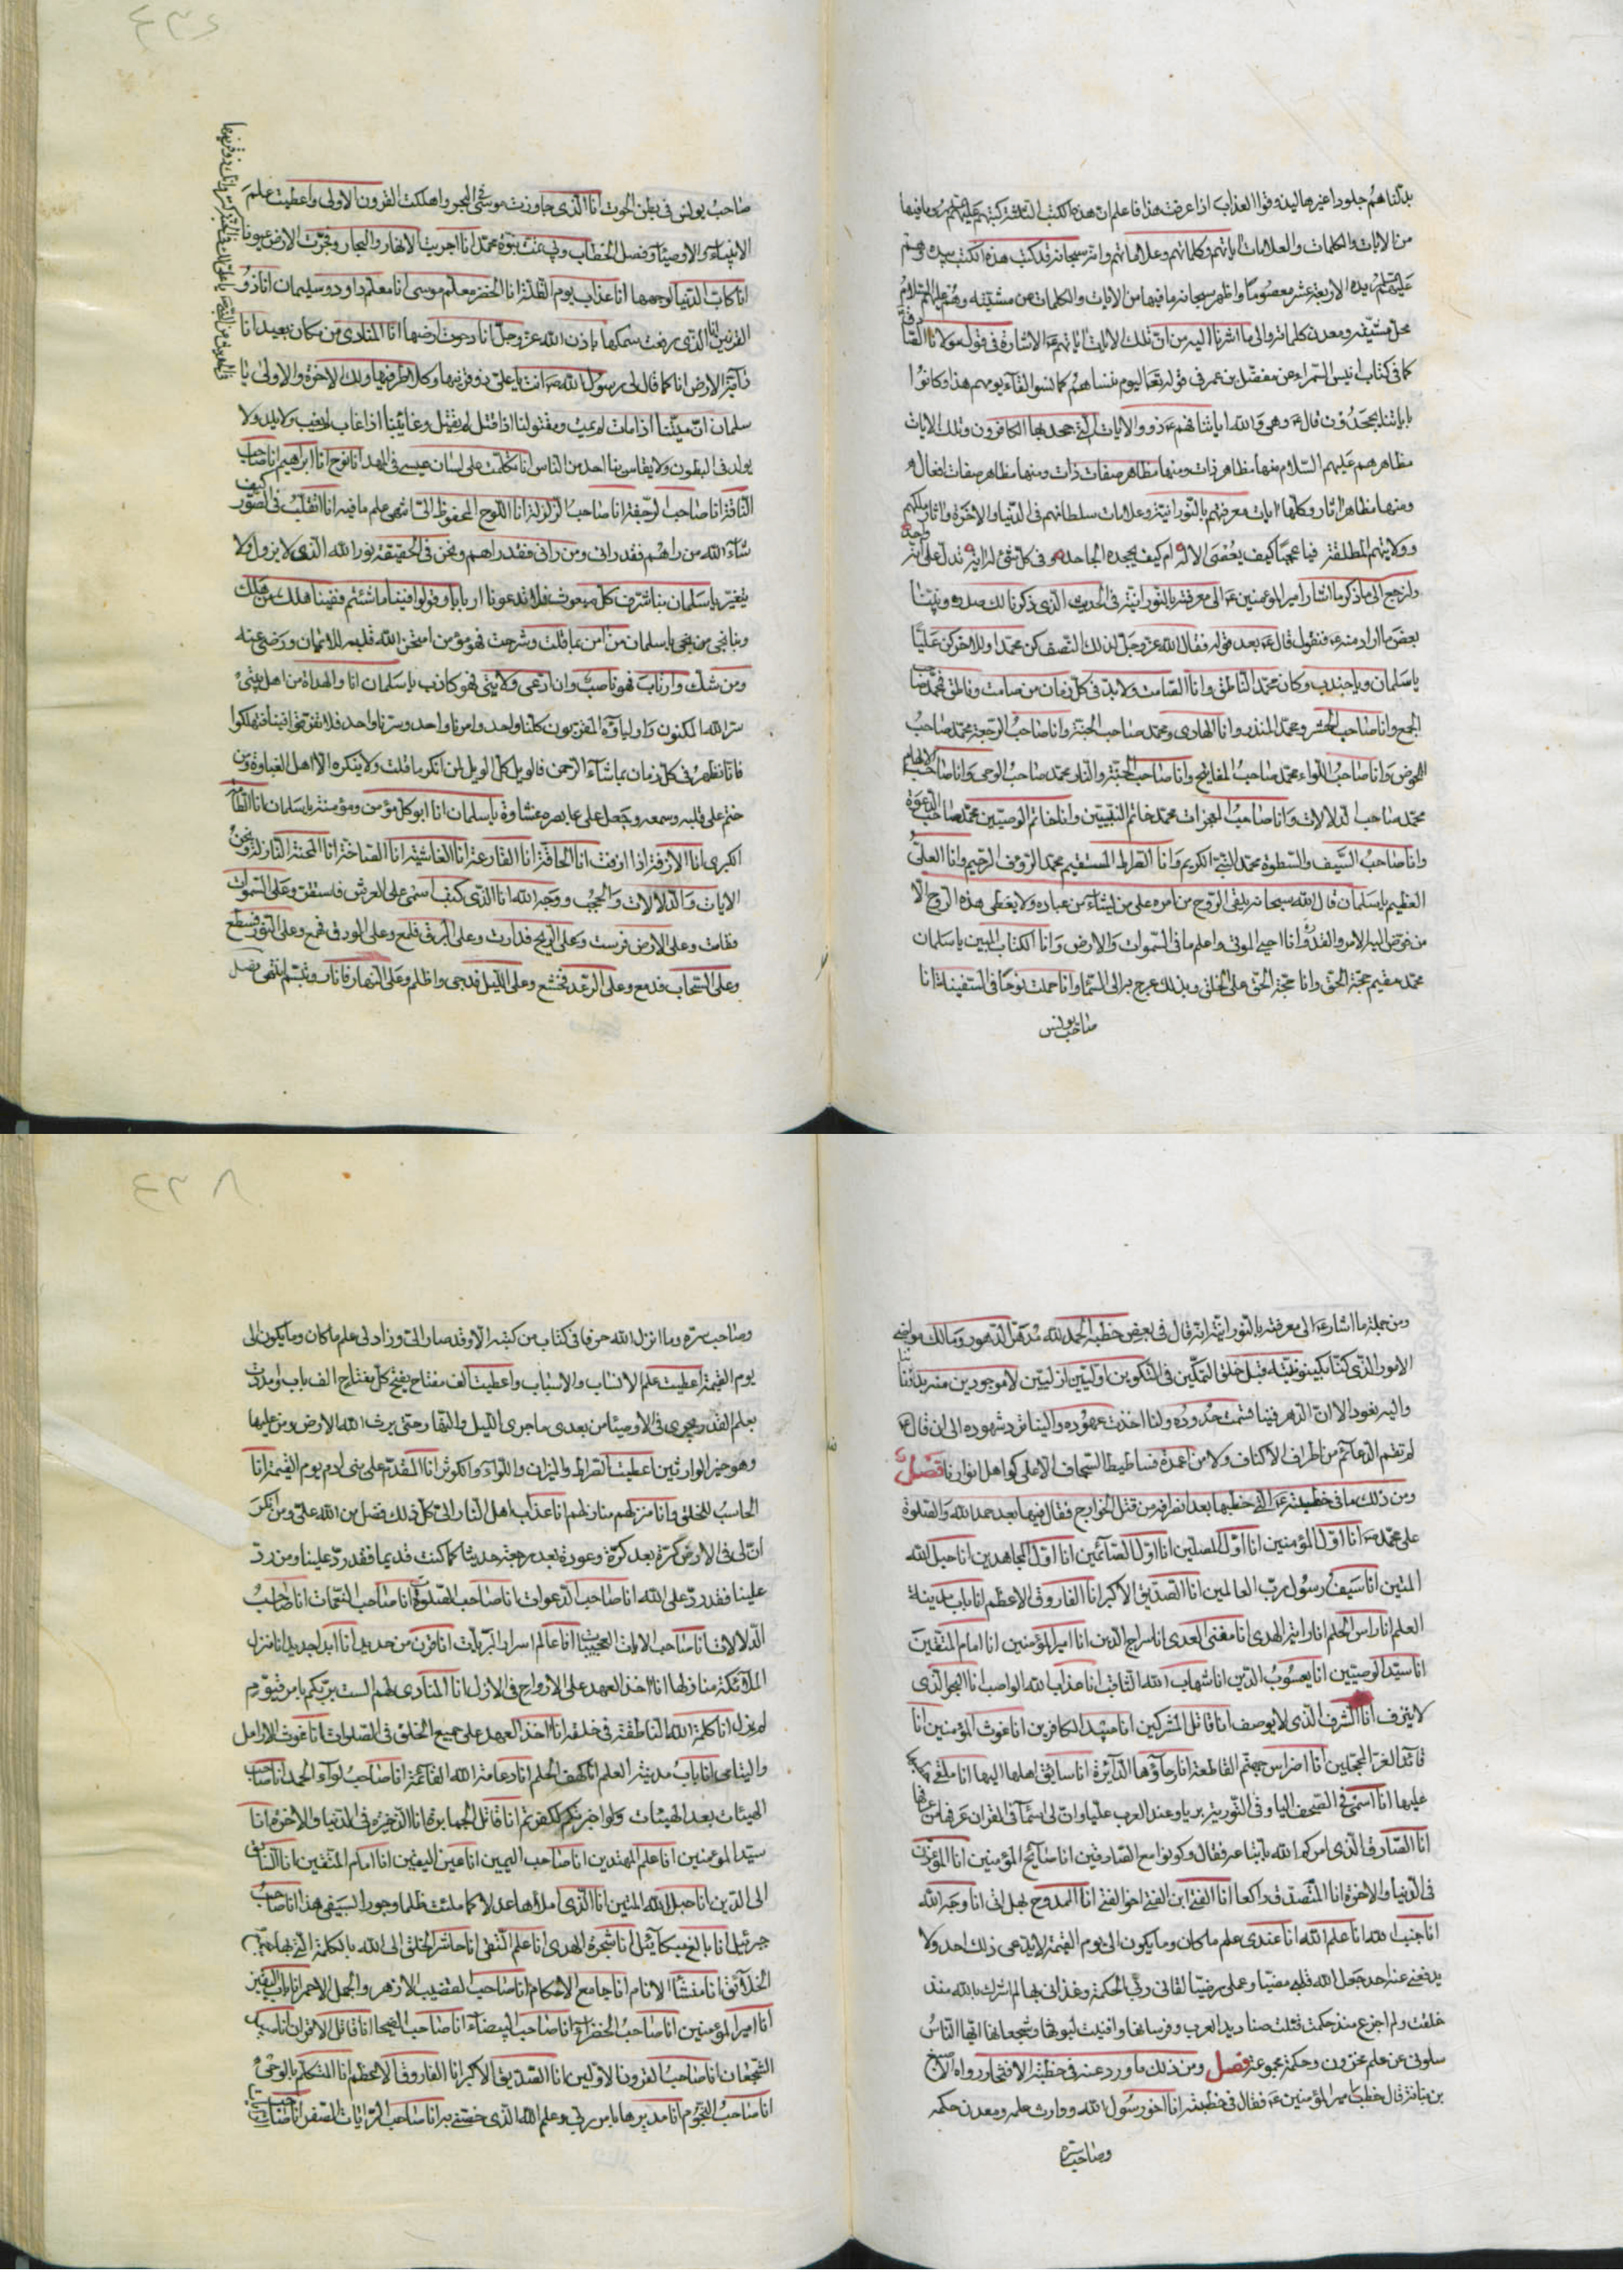 بدلناهم جلودا غيرها ليذوقوا العذاب اذا عرفت هذا فاعلم ان هذه الكتب
من الايات والكلمات والعلامات اياتهم وكلماتهم وعلاماتهم وانه سبحانه قد كتب هذه الكتب بيده وهم
عليهم السلام يده الاربعة عشر معصوما واظهر سبحانه ما فيها من الايات والكلمات من مشيته وهم عليهم السلام
محل مشيته ومعدن كلماته والى ما اشرنا اليه من ان تلك الايات اياتهم الاشارة في قول مولانا الصادق
كما في كتاب انيس السمراء عن مفضل بن عمر في قوله تعالى اليوم ننساهم كما نسوا لقاء يومهم هذا وكانوا
باياتنا يجحدون قال وهي والله اياتنا فهم ذووا الايات التي جحد بها الكافرون وتلك الايات
مظاهرهم عليهم السلام منها مظاهر ذات ومنها مظاهر صفات ذات ومنها مظاهر صفات افعال
ومنها مظاهر اثار وكلها ايات معرفتهم بالنورانية وعلامات سلطانهم في الدنيا والاخرة واثار ملكهم
وولايتهم المطلقة فيا عجبا كيف يعصى الاله ام كيف يجحده الجاحد وفي كل شئ له اية تدل على انه واحد
ولنرجع الى ما ذكر ما اشار امير المؤمنين الى معرفته بالنورانية في الحديث الذي ذكرنا لك صدره ونبث
بعض ما اراد منه فنقول قال بعد قوله فقال الله عز وجل لذلك النصف كن محمدا وللاخر كن عليا
يا سلمان ويا جندب وكان محمد الناطق وانا الصامت ولابد في كل زمان من صامت وناطق فمحمد صاحب
الجمع وانا صاحب الحشر ومحمد المنذر وانا الهادي ومحمد صاحب الجنة وانا صاحب الرجعة محمد صاحب
الحوض وانا صاحب اللواء محمد صاحب المفاتيح وانا صاحب الجنة والنار محمد صاحب الوحي وانا صاحب الالهام
محمد صاحب الدلالات وانا صاحب المعجزات محمد خاتم النبيين وانا خاتم الوصيين محمد صاحب الدعوة
وانا صاحب السيف والسطوة محمد النبي الكريم وانا الصراط المستقيم محمد الرؤف الرحيم وانا العلي
العظيم يا سلمان قال الله سبحانه يلقي الروح من امره على من يشاء من عباده ولا يعطى هذه الروح الا
من فوض اليه الامر والقدر وانا احيي الموتى واعلم ما في السموات والارض وانا الكتاب المبين يا سلمان
محمد مقيم حجة الحق وانا حجة الحق على الخلق وبذلك عرج به الى السماء وانا حملت نوحا في السفينة انا
صاحب يونس
صاحب يونس في بطن الحوت انا الذي جاوزت موسى في البحر واهلكت القرون الاولى واعطيت علم
الانبياء والاوصياء وفصل الخطاب وبي تمت نبوة محمد انا اجريت الانهار والبحار وفجرت الارض عيونا
انا كاب الدنيا لوجهها انا عذاب يوم الظلة انا الخضر معلم موسى انا معلم داود وسليمان انا ذو
القرنين انا الذي رفعت سمكها باذن الله عز وجل انا دحوت ارضها انا المنادي من مكان بعيد انا
دآبة الارض انا كما قال لي رسول الله انت يا علي ذو قرنيها وكلا طرفيها ولك الاخرة والاولى يا
سلمان ان ميتنا اذا مات لم يمت ومقتولنا اذا قتل لم يقتل وغائبنا اذا غاب لم يغب ولا نلد ولا
نولد في البطون ولا يقاس بنا احد من الناس انا تكلمت على لسان عيسى في المهد انا نوح انا ابراهيم انا صاحب
الناقة انا صاحب الرجفة انا صاحب الزلزلة انا اللوح المحفوظ الي انتهى علم ما فيه انا انقلب في الصور كيف
شاء الله من راهم فقد راني ومن راني فقد راهم ونحن في الحقيقة نور الله الذي لا يزول ولا
يتغير يا سلمان بنا شرف كل مبعوث فلا تدعونا اربابا وقولوا فينا ما شئتم ففينا هلك من هلك
وبنا نجى من نجى يا سلمان من امن بما قلت وشرحت فهو مؤمن امتحن الله قلبه للايمان ورضي عنه
ومن شك وارتاب فهو ناصب وان ادعى ولايتي فهو كاذب يا سلمان انا والهداة من اهل بيتي
سر الله المكنون واولياؤه المقربون كلنا واحد وامرنا واحد وسرنا واحد فلا تفرقوا فينا فتهلكوا
فانا نظهر في كل زمان بما شاء الرحمن فالويل كل الويل لمن انكر ما قلت ولا ينكره الا اهل الغباوة ومن
ختم على قلبه وسمعه وجعل على بصره غشاوة يا سلمان انا ابو كل مؤمن ومؤمنة يا سلمان انا الطامة
الكبرى انا الازفة اذا ازفت انا الحاقة انا القارعة انا الغاشية انا الصاخة انا المحنة النازلة ونحن
الايات والدلالات والحجب ووجه الله انا الذي كتب اسمي على العرش فاستقر وعلى السموات
فقامت وعلى الارض فرست وعلى الريح فدارت وعلى البرق فلمع وعلى الودق فهمع وعلى النور فسطع
وعلى السحاب فدمع وعلى الرعد فخشع وعلى الليل فدجى واظلم وعلى النهار فانار وتبسم انتهى فصل
ومن جملة ما اشار الى معرفته بالنورانية انه قال في بعض خطبه الحمد لله مدهر الدهور ومالك مواضي
الامور الذي كنا بكينونيته قبل خلق التمكين في التكوين اوليين ازليين لا موجودين منه بدئنا
واليه نعود الا ان الدهر فينا قسمت حدوده ولنا اخذت عهوده والينا ترد شهوده الى ان قال
لم تقم الدعائم من اطراف الاكناف ولا من اعمدة فساطيط السجاف الا على كواهل انوارنا فصل
ومن ذلك ما في خطبته التي خطبها بعد انصرافه من قتل الخوارج فقال فيها بعد حمد الله والصلوة
على محمد انا اول المؤمنين انا اول المسلمين انا اول الصائمين انا اول المجاهدين انا حبل الله
المتين انا سيف رسول رب العالمين انا الصديق الاكبر انا الفاروق الاعظم انا باب مدينة
العلم انا راس الحلم انا راية الهدى انا مفتي العدى انا سراج الدين انا امير المؤمنين انا امام المتقين
انا سيد الوصيين انا يعسوب الدين انا شهاب الله الثاقب انا عذاب الله الواصب انا البحر الذي
لا ينزف انا الشرف الذي لا يوصف انا قاتل المشركين انا مبيد الكافرين انا غوث المؤمنين انا
قائد الغر المحجلين انا اضراس جهنم القاطعة انا رحاؤها الدآئرة انا سائق اهلها اليها انا ملقي
عليها انا اسمي في الصحف اليا وفي التورية بريا وعند العرب عليا وان لي اسمآ في القران عرفها من عرفها
انا الصادق الذي امركم الله باتباعه فقال وكونوا مع الصادقين انا صالح المؤمنين انا المؤذن
في الدنيا والاخرة انا المتصدق راكعا انا الفتى ابن الفتى اخو الفتى انا الممدوح بهل اتى انا وجه الله
انا جنب الله انا علم الله انا عندي علم ما كان وما يكون الى يوم القيمة لا يدعي ذلك احد ولا
يدفعني عنه احد جعل الله قلبي مضيا وعملي رضيا لقاني ربي الحكمة وغذاني بها لم اشرك بالله منذ
خلقت ولم اجزع منذ حكمت قتلت صناديد العرب وفرسانها وافنيت ليوثها وشجعانها ايها الناس
سلوني عن علم مخزون وحكمة مجموعة فصل ومن ذلك ما ورد عنه في خطبة الافتخار رواه الاصبغ
بن نباتة قال خطب امير المؤمنين فقال في خطبته انا اخو رسول الله ووارث علمه ومعدن حكمه
وصاحب سره
وصاحب سره وما انزل الله حرفا في كتاب من كتبه الا وقد صار الي وزاد لي علم ما كان وما يكون الى
يوم القيمة اعطيت علم الانساب والاسباب واعطيت الف مفتاح يفتح كل مفتاح الف باب ومددت
بعلم القدر وجرى في الاوصياء من بعدي ما جرى الليل والنهار حتى يرث الله الارض ومن عليها
وهو خير الوارثين اعطيت الصراط والميزان واللواء والكوثر انا المقدم على بني ادم يوم القيمة انا
الحاسب للخلق وانا منزلهم منازلهم انا عذاب اهل النار الي كل ذلك فضل من الله علي ومن انكر
ان لي في الارض كرة بعد كرة وعودة بعد رجعة حديثا كما كنت قديما فقد رد علينا ومن رد
علينا فقد رد على الله انا صاحب الدعوات انا صاحب الصلوة انا صاحب النقمات انا صاحب
الدلالات انا صاحب الايات العجيبات انا عالم اسرار البريات انا قرن من حديد انا ابدا جديد انا منزل
الملائكة منازلها انا اخذ العهد على الارواح في الازل انا المنادي لهم الست بربكم بامر قيوم
لم يزل انا كلمة الله الناطقة في خلقه انا اخذ العهد على جميع الخلق في الصلوات انا غوث الارامل
واليتامى انا باب مدينة العلم انا كهف الحلم انا دعامة الله القائمة انا صاحب لوآء الحمد انا صاحب
الهبات بعد الهبات ولو اخبرتكم لكفرتم انا قاتل الجبابرة انا الذخيرة في الدنيا والاخرة انا
سيد المؤمنين انا علم المهتدين انا صاحب اليمين انا عين اليقين انا امام المتقين انا السابق
الى الدين انا حبل الله المتين انا الذي املأها عدلا كما ملئت ظلما وجورا بسيفي هذا انا صاحب
جبرئيل انا تابع ميكائيل انا شجرة الهدى انا علم التقى انا حاشر الخلق الى الله بالكلمة التي بها يجمع
الخلآئق انا منشأ الانام انا جامع الاحكام انا صاحب القضيب الازهر والجمل الاحمر انا باب اليقين
انا امير المؤمنين انا صاحب الخضرآء انا صاحب البيضآء انا صاحب الفيحا انا قاتل الاقران انا مبيد
الشجعان انا صاحب القرون الاولين انا الصديق الاكبر انا الفاروق الاعظم انا المتكلم بالوحي
انا صاحب النجوم انا مدبرها بامر ربي وعلم الله الذي خصني به انا صاحب الرايات الصفر انا صاحب